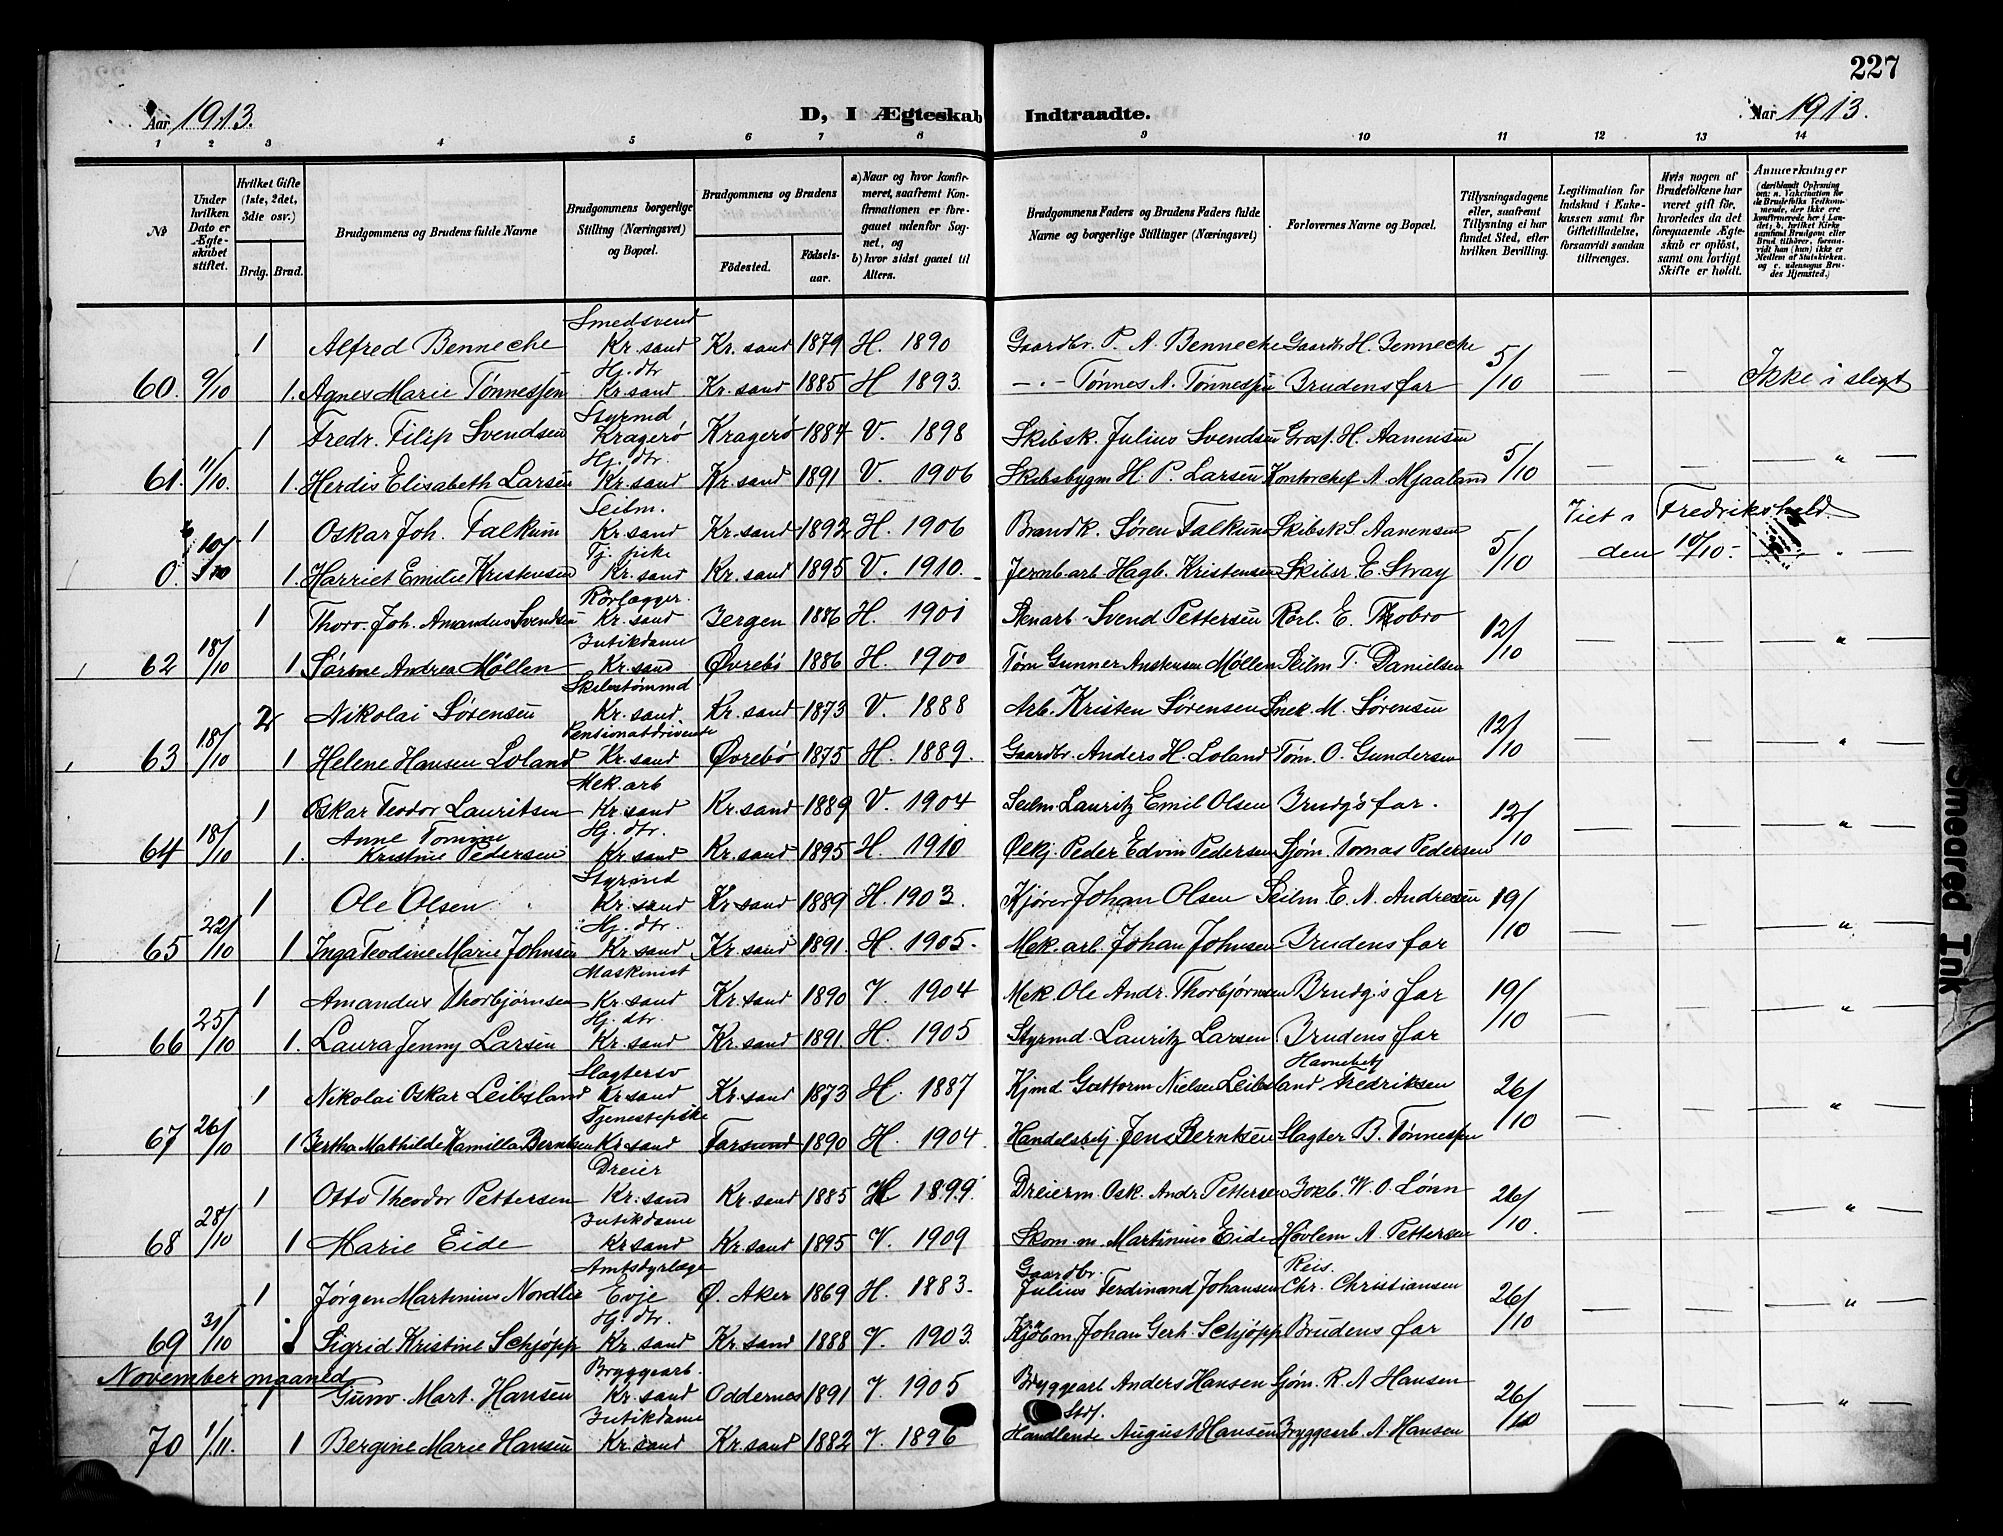 227
Aar 1913.
D, I Ægteskab Indtraadte.
Aar 1913.
1 2 3 4 5 6 7 8 9 10 11 12 13 14
No
Under hvilken Dato er Ægteskabet stiftet.
Hvilket Gifte (1ste, 2det, 3die osv.)
Brdg. Brud.
Brudgommens og Brudens fulde Navne
Brudgommens borgerlige Stilling (Næringsvei) og Bopæl.
Brudgommens og Brudens
Födested. Födselsaar.
a) Naar og hvor konfirmeret, saafremt Konfirmationen er foregaaet udenfor Sognet, og
b) hvor sidst gaaet til Alters.
Brudgommens Faders og Brudens Faders fulde Navne og borgerlige Stillinger (Næringsvei)
Forlovernes Navne og Bopæl.
Tillysningsdagene eller, saafremt Tillysning ei har fundet Sted, efter hvilken Bevilling.
Legitimation for Indskud i Enkekassen samt for Giftetilladelse, forsaavidt saadan tiltrænges.
Hvis nogen af Brudefolkene har været gift för, hvorledes da det foregaaende Ægteskab er oplöst, samt om lovligt Skifte er holdt.
Anmærkninger
(deriblandt Oplysning om: a. Vakcination for de Brudefolks Vedkommende, der ikke ere konfirmerede her i Landet; b. hvilket Kirkesamfund Brudgom eller Brud tilhörer, forsaavidt han (hun) ikke er Medlem af Statskirken, og c. udensogns Brudes Hjemsted.)
Smedsvend
1 Alfred Benneche Kr. sand Kr. sand 1879 H. 1890 Gaardbr. P. A. Bennecke Gaardbr H. Bennecke 5/10
Hj. dtr
60. 9/10 1. Agnes Marie Tønnessen Kr. sand Kr. sand 1885 H 1893. — " — Tønnes A. Tønnessen Brudens far — — Ikke i slegt
Styrmd
1 Fredr. Filip Svendsen Kragerö Kragerö 1884 V. 1898 Skibsk. Julius Svendsen Gross. H. Aanensen 5/10
Hj. dtr.
61. 11/10. 1. Herdis Elisabeth Larsen Kr. sand Kr. sand 1891 V. 1906 Skibsbygm H. P. Larsen Kontorchef A. Mjaaland — — "
Seilm.
1 Oskar Joh. Falkum Kr. sand Kr. sand 1892 H. 1906 Brandk. Søren Falkum Skibsk S. Aanensen 5/10 Viet i Fredrikshald
Tj. pike
0. 10/10 1. Harriet Emilie Kristensen Kr. sand Kr. sand 1895 V. 1910. Jernb. arb. Hagb. Kristensen Skibsr. E. Stray den 10/10. "
Rörlægger.
1 Thorv. Joh. Amandus Svendsen Kr. sand Bergen 1886 H. 1901 Stenarb. Svend Pettersen Rörl. E. Thobro 12/10
Butikdame
62 18/10 1 Sørine Andrea Møllen Kr. sand Øvrebö 1886 H. 1900 Tøm Gunner Anstensen Møllen Seilm T. Danielsen — — "
Skibstømmd
2 Nikolai Sørensen Kr. sand Kr. sand 1873 V. 1888 Arb. Kristen Sørensen Snek. M. Sørensen 12/10
Pensionatdrivende
63 18/10 1 Helene Hansen Loland Kr. sand Øvrebö 1875 H. 1889. Gaardbr. Anders H. Loland Tøm. O. Gundersen — — "
Mek. arb
1 Oskar Teodor Lauritsen Kr. sand Kr. sand 1889 V. 1904 Seilm Lauritz Emil Olsen Brudgs far. 12/10
Anne Tomine Hj. dtr.
64 18/10 1. Kristine Pedersen Kr. sand Kr. sand 1895 H. 1910 Ølkj. Peder Edvin Pedersen Sjøm. Tomas Pedersen — — "
Styrmd
1 Ole Olsen Kr. sand Kr. sand 1889 H. 1903. Kjører Johan Olsen Seilm. E. A. Andresen 19/10
Hj. dtr.
65 22/10 1 Inga Teodine Marie Johnsen Kr. sand Kr. sand 1891. H. 1905. Mek. arb. Johan Johnsen Brudens far — — "
Maskinist
1 Amandus Thorbjørnsen Kr. sand Kr. sand 1890 V. 1904 Mek. Ole Andr. Thorbjørnsen Brudgs far 19/10
Hj. dtr.
66 25/10 1. Laura Jenny Larsen Kr. sand Kr. sand 1891. H. 1905 Styrmd. Lauritz Larsen Brudens far — — "
Slagtersv Havnebetj
1 Nikolai Oskar Leibsland Kr. sand Kr. sand 1873 H. 1887 Kjmd Guttorm Nielsen Leibsland Fredriksen 26/10
Tjenestepike
67 26/10 1 Bertha Mathilde Kamilla Berntsen Kr. sand Farsund 1890 H. 1904. Handelsbetj. Jens Berntsen Slagter B. Tønnessen — — "
Dreier
1 Otto Theodor Pettersen Kr. sand Kr. sand 1885 H 1899. Dreierm. Osk. Andr. Pettersen Bokb. W. O. Lönn 26/10.
Butikdame
68 28/10 1 Marie Eide Kr sand Kr. sand 1895 V. 1909 Skom. m. Martinius Eide Høvlem A. Pettersen — — "
Amtsdyrlæge Gaardbr. Reis.
1 Jørgen Martinius Nordlie Evje Ø. Aker 1869 H. 1883. Julius Ferdinand Johansen Chr. Christiansen 26/10
Hj. dtr.
69 31/10 1 Sigrid Kristine Schjøpp Kr. sand Kr. sand 1888 V. 1903. Kjöbm. Johan Gerh. Schjøpp Brudens far — — "
November maaned Bryggearb.
1 Gunv. Mart. Hansen Kr. sand Oddernes 1891 V. 1905 Bryggearb Anders Hansen Sjøm. R. A Hansen 26/10
Butikdame
70 1/11. 1 Bergine Marie Hansen Kr. sand Kr. sand 1882 V. 1896 Handlende August Hansen Bryggearb. A. Hansen — — "
Smeared Ink